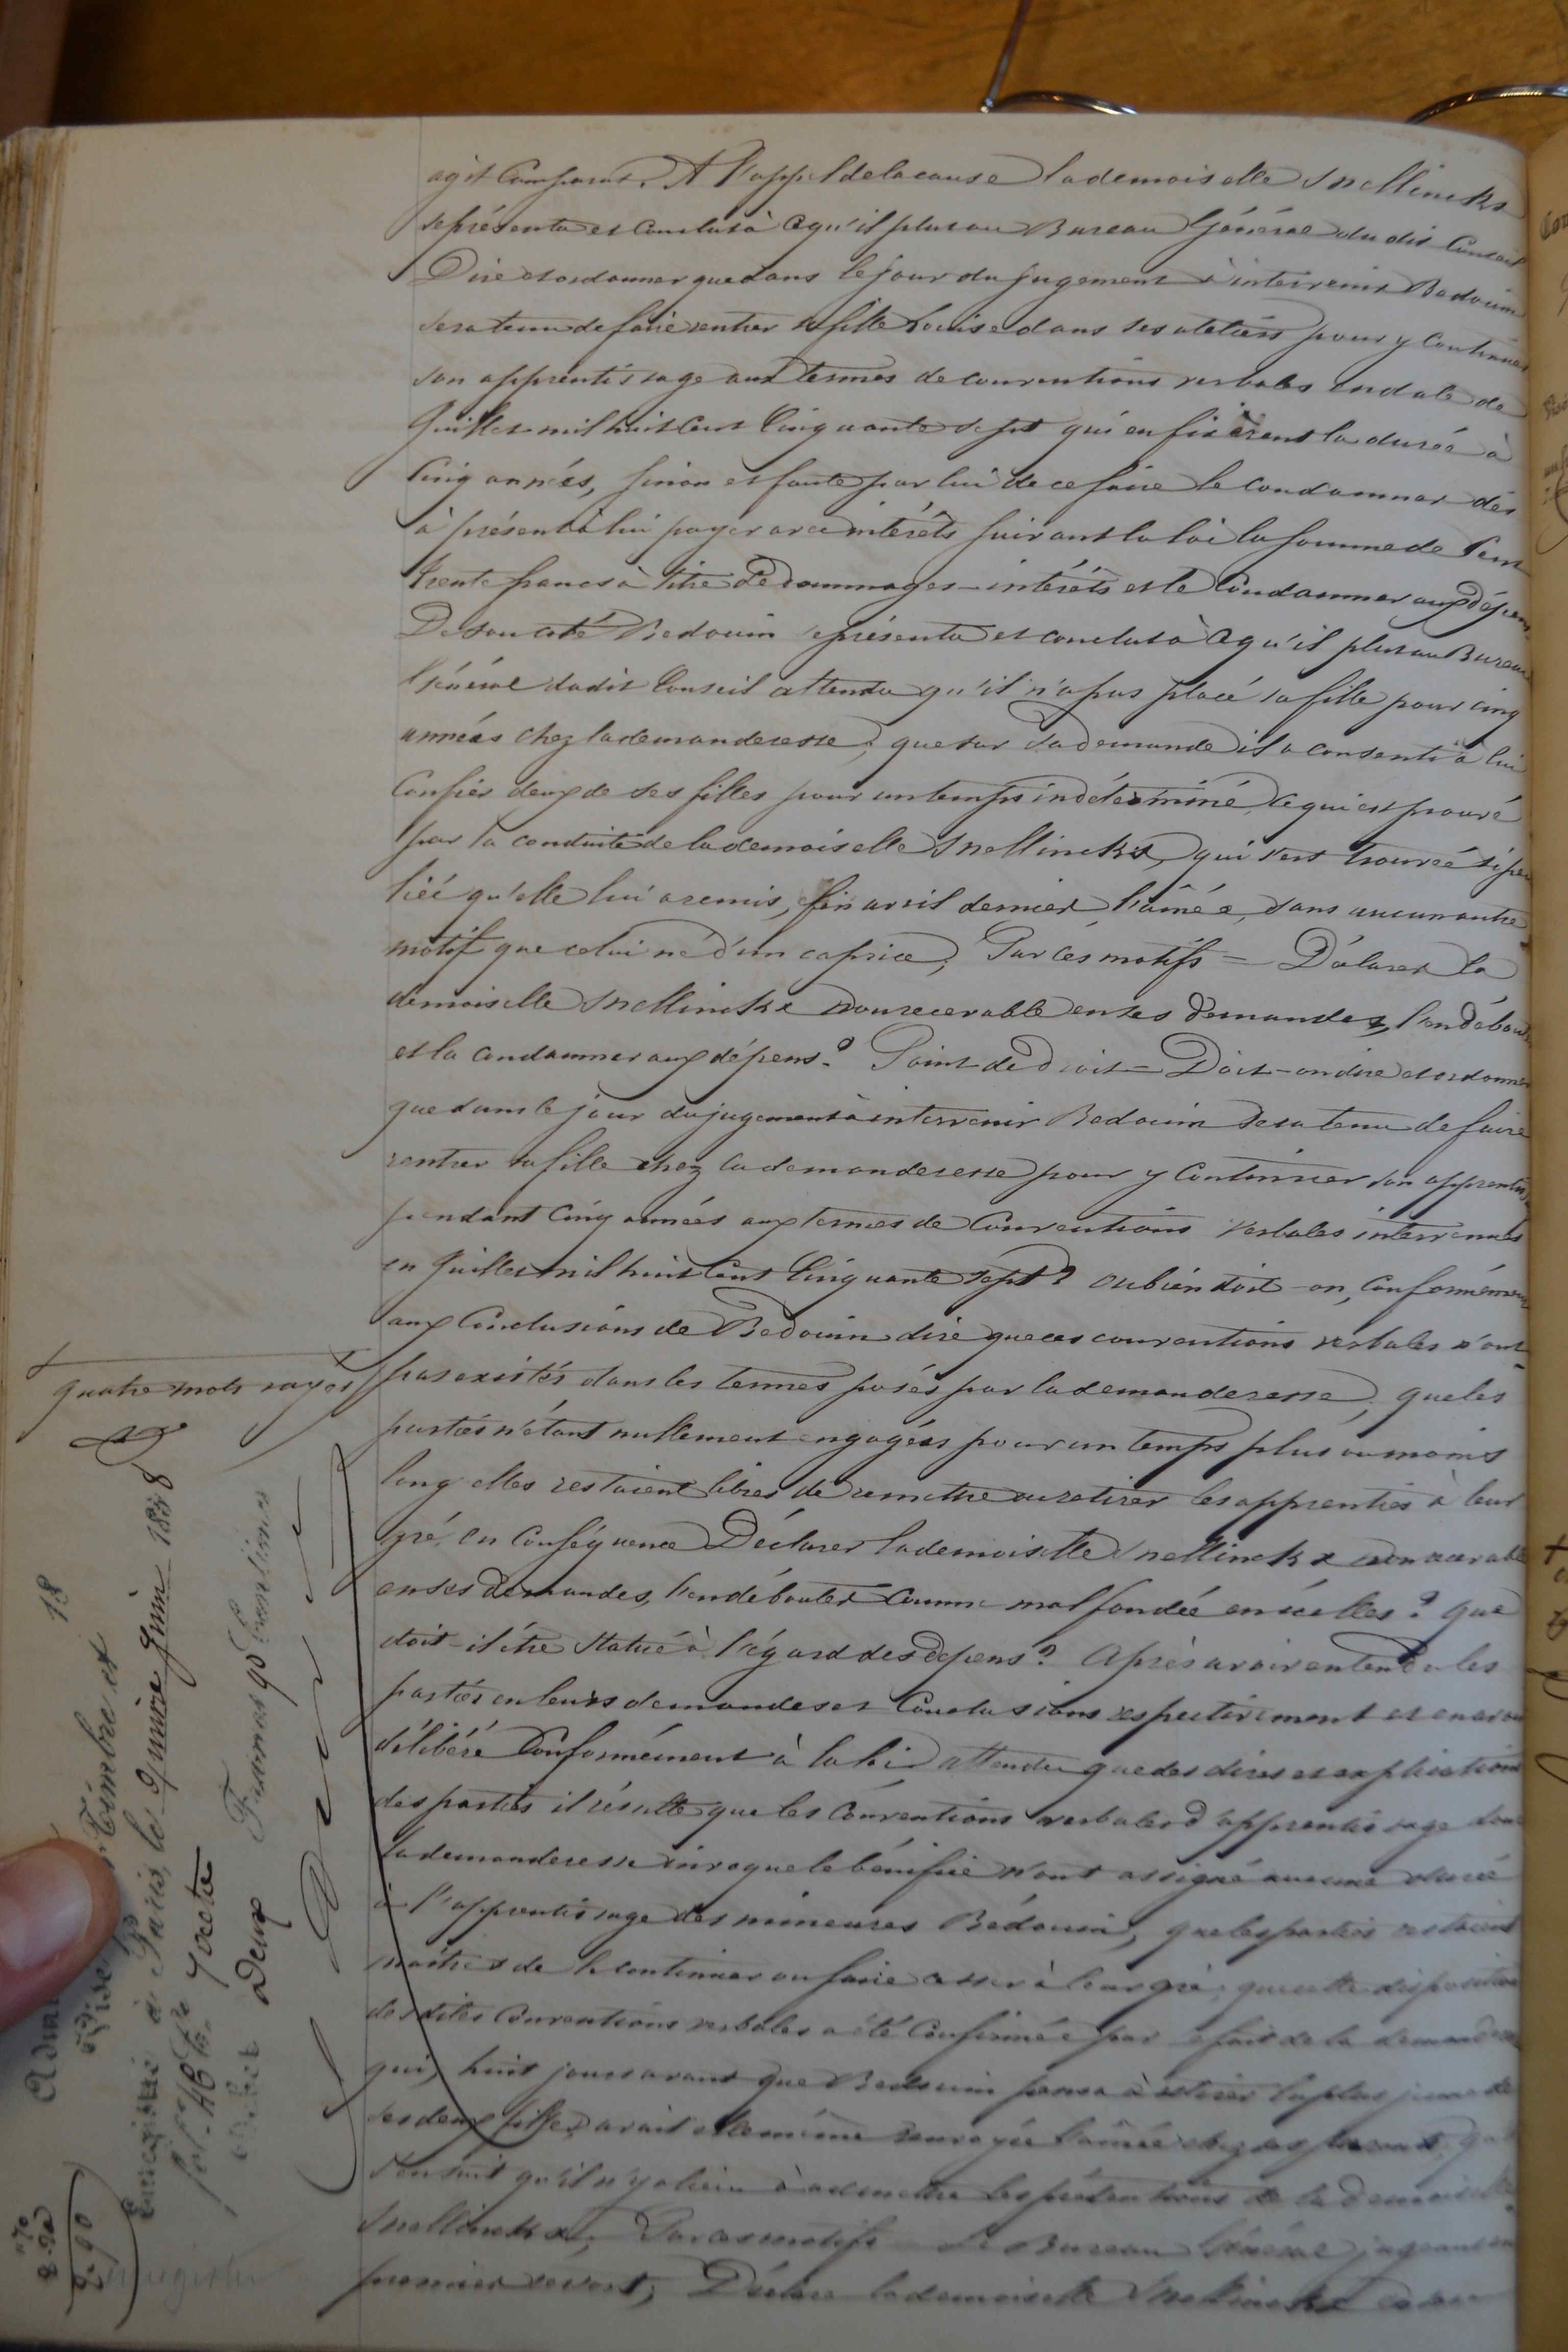 agit Comparut. A l'appel de la cause la demoiselle Snellinckx
se présenta et conclut à ce qu'il plut au Bureau Général du dit Conseil
Dire et ordonner que dans le jour du jugement à intervenir Bedouin
sera tenu de faire rentrer sa fille Louise dans ses ateliers pour y Continuer
son apprentissage aux termes de conventions verbales en date de
Juillet mil huit Cent Cinquante sept qui en fixèrent la durée à
Cinq années, sinon et faute par lui de ce faire le condamner dès
à présent à lui payer avec intérêts suivant la loi la somme de Cent
trente francs à titre de dommages-intérêts et le Condamner aux dépens
De son coté Bedouin se présenta et conclut à ce qu'il plut au Bureau
Général dudit Conseil attendu qu'il n'a pas placé sa fille pour cinq
années chez la demanderesse; que sur sa demande il a consenti à lui
Confier deux de ses filles pour un temps indéterminé, ce qui est prouvé
par la conduite de la demoiselle Snellinckx, qui s'est trouvée si peu
liée qu'elle lui a remis, fin avril dernier l'aînée, sans aucun autre
motif que celui né d'un caprice; Par ces motifs = Déclarer la
demoiselle Snellinckx non recevable en ses demandes, l'en débouter
et la condamner aux dépens. Point de Droit = Doit-on dire et ordonner
que dans le jour du jugement à intervenir Bedouin sera tenu de faire
rentrer sa fille chez la demanderesse pour y Continuer son apprentissage
pendant Cinq années aux termes de Conventions verbales intervenues
en Juillet mil huit Cent Cinquante sept? ou bien doit-on, Conformément
aux Conclusions de Bedouin dire que ces conventions verbales n'ont
pas existés dans les termes posés par la demanderesse; que les
parties n'étant nullement engagées pour un temps plus ou moins
long elles restaient libres de remettre ou retirer les apprenties à leur
gré, en Conséquence Déclarer la demoiselle Snellinckx non recevable
en ses demandes, l'en débouter Comme mal fondée en icelles? Que
doit-il être Statué à l'égard des dépens? Après avoir entendu les
parties en leurs demandes et Conclusions respectivement et en avoir
délibéré Conformément à la loi attendu que des dires et explications
des parties il résulte que les Conventions verbales d'apprentissage dont
la demanderesse invoque le bénéfice n'ont assigné aucune durée
à l'apprentissage des mineures Bédouin, que les parties restaient
maîtres de le continuer ou faire cesser à leur gré; que cette disposition
desdites Conventions verbales a été Confirmée par le fait de la demanderesse
qui, huit jours avant que Bedouin pensa à retirer la plus jeune de
ses deux filles, avait elle même renvoyée l'aînée chez ses parents; qu'il
s'en suit qu'il n'y a lieu à admettre les prétentions de la demoiselle
Snellinckx; Par ces motifs = Le Bureau Général jugeant en
premier ressort; Déclare la demoiselle Snellinckx
quatre mots rayés
18
Timbre et
à Paris, le quinze Juin 1858
fol. 46
Deux francs 90 Centimes